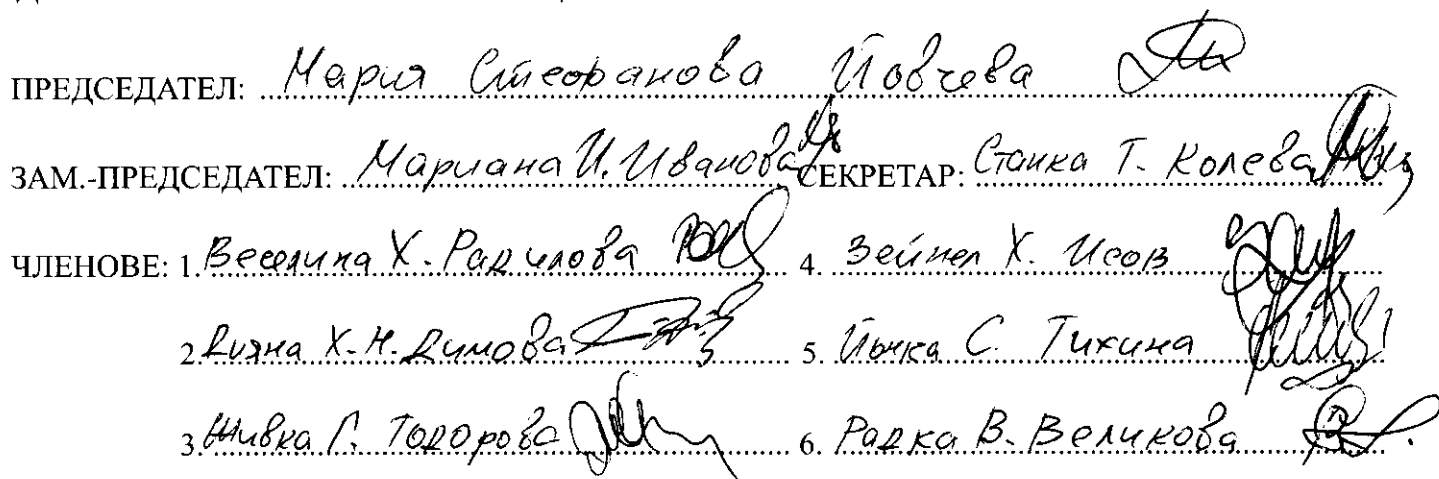 ПРЕДСЕДАТЕЛ: Мария Стефанова Йовчева
ЗАМ.-ПРЕДСЕДАТЕЛ: Мариана И. Иванова СЕКРЕТАР: Станка Т. Колева
ЧЛЕНОВЕ: 1. Веселина Х. Радилова 4. Зейнел Х. Исов
2. Дияна Х.Н. Димова 5. Йонка С. Тихина
3. Живка Г. Тодорова 6. Радка В. Великова